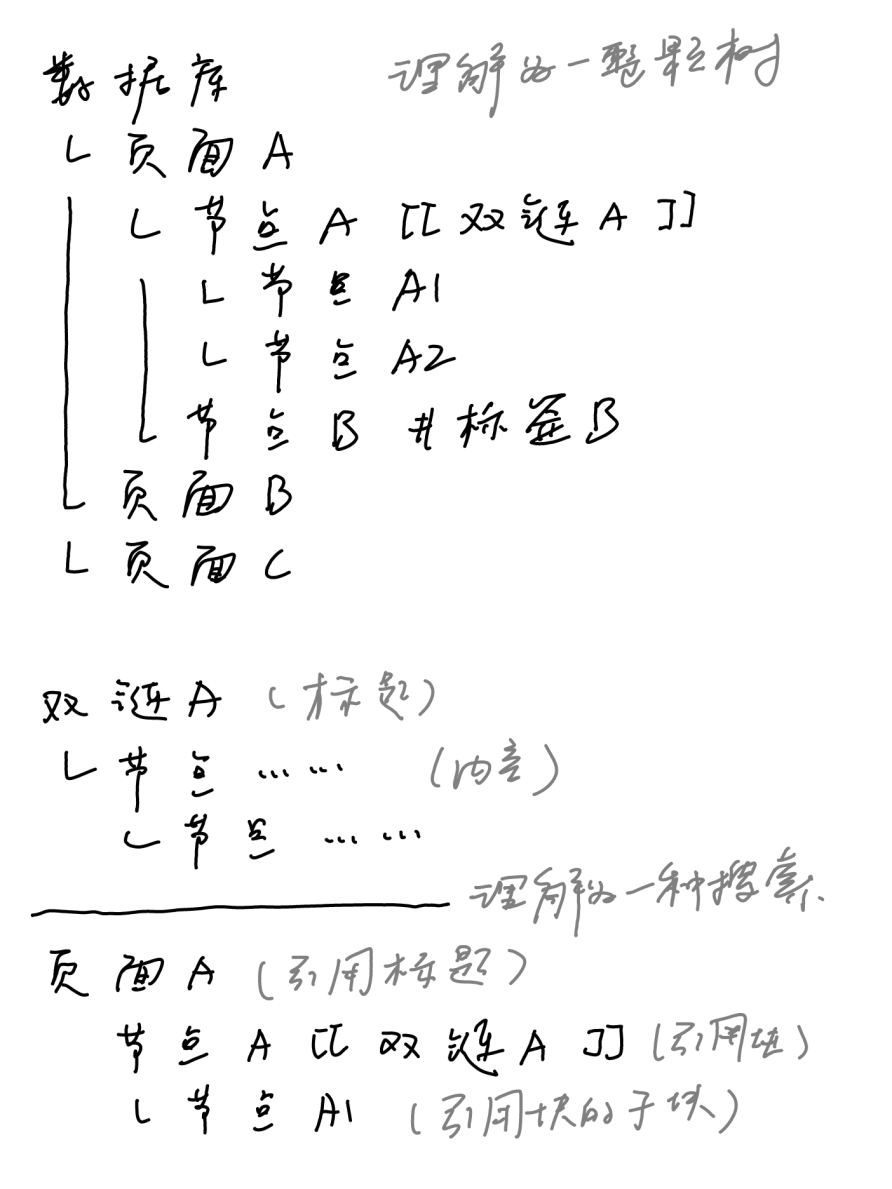 数据库 理解为一整颗树
└ 页面 A
└ 节点 A [[双链 A ]]
└ 节点 A1
└ 节点 A2
└ 节点 B #标签B
└ 页面 B
└ 页面 C
双链A (标题)
└ 节点 …… (内容)
└ 节点 ……
理解为一种搜索.
页面 A (引用标题)
节点 A [[双链 A ]] (引用块)
└ 节点 A1 (引用块的子块)